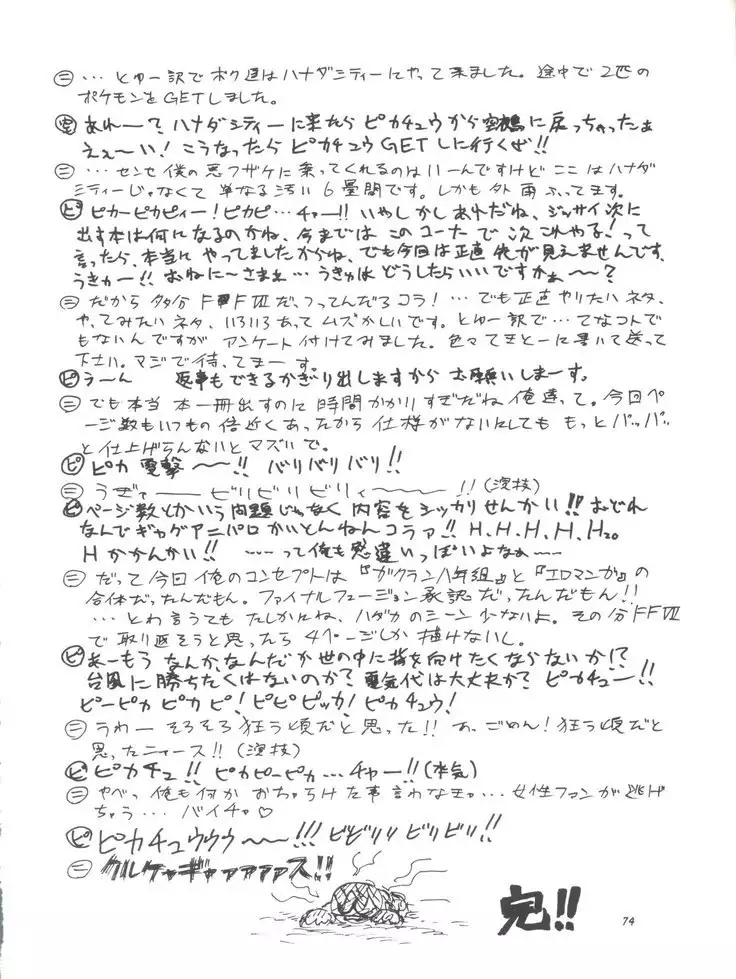 ㊁ …とゆー訳でボク達はハナダシティーにやって来ました。途中で2匹の
ポケモンをGETしました。
あれー?ハナダシティーに来たらピカチュウから空鶴に戻っちゃったぁ
えぇ〜い!こうなったらピカチュウGETしに行くぜ!!
㊁ …センセ僕の悪フザケに乗ってくれるのはいーんですけどここはハナダ
シティーじゃなくて単なる汚い6畳間です。しかも外雨ふってます。
ピ ピカーピカピィー!ピカピ…チャー!!いやしかしあれだね、ジッサイ次に
出す本は何になるのかね、今までは このコーナで次これやる!って
言ったら、本当に やってましたからね、でも今回は正直先が見えませんです、
うきゅー!! おねに〜さまぇ…うきゅはどうしたらいいですかぁ〜〜?
㊁ だから多分FFⅦだ、つってんだろコラ!…でも正直やりたいネタ、
やってみたいネタ、いろいろあってムズかしいです。とゆー訳で…てなコトで
もないんですが アンケート付けてみました。色々てきとーに書いて送って
下さい。マジで待ってまーす。
ピ う〜ん 返事もできるかぎり出しますから お願いしまーす。
㊁ でも本当 本一冊出すのに 時間かかりすぎだね俺達って。今回ペ
ージ数もいつもの倍近くあったから仕様がないにしても もっとパッパッ
と仕上げらんないとマズいで。
ピ ピカ 電撃〜〜!! バリバリバリ!!
㊁ うぎゃーーービリビリビリィ〜〜〜!!(演技)
ピ ページ数とかいう問題じゃなく内容をシッカリせんかい!! おどれ
なんでギャグアニパロかいとんねんコラァ!! H、H、H、H、H₂O
Hかかんかい!! ……って俺も勘違いっぽいよなぁ〜〜
㊁ だって今回俺のコンセプトは『ガクラン八年組』と『エロマンガ』の
合体だったんだもん。ファイナルフュージョン承認だったんだもん!!
…とわ言うてもたしかにね、ハダカのシーン少ないよ。その分FFⅦ
で取り返そうと思ったら4ページしか描けないし。
ピ あーもう なんか、なんだか世の中に背を向けたくならないか!?
台風に勝ちたくはないのか?電気代は大丈夫か? ピカチュー!!
ピーピカ ピカピ!ピピピッカ!ピカチュウ!
㊁ うわー そろそろ狂う頃だと思った!! あ、ごめん!狂う頃だと
思ったニャース!!(演技)
ピ ピカチュ!! ピカピーピカ…チャー!!(本気)
㊁ やべっ 俺も何か おちゃらけた事言わなきゃ…女性ファンが逃げ
ちゃう…バイチャ♡
ピ ピカチュウウウ〜〜!!! ビビリリ ビリビリ!!
㊁ クルケャギャァァァァス!!
完!!
74